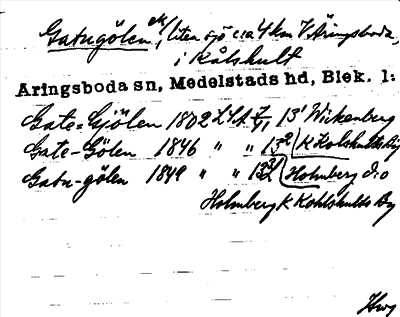 Gatugölen, ek, liten sjö c:a 4 km V Åringsboda,
i Kålshult
Åringsboda sn, Medelstads hd, Blek. l:
Gate-Gjölen 1802 LSA 13¹ Wickenberg
Gate-Gölen 1846 " " 13² K Kolshults By
Gatu-gölen 1849 " " Holmberg d:o
Holmberg K Kohlshults By
Hwg